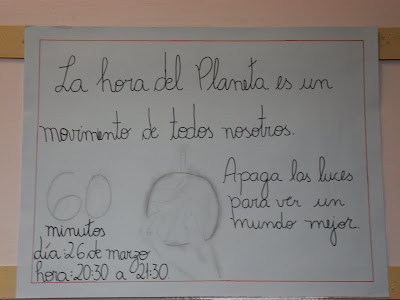 La hora del Planeta es un
movimento de todos nosotros.
60
minutos
día:26 de marzo
hora:20:30 a 21:30
Apaga las luces
para ver un
mundo mejor.